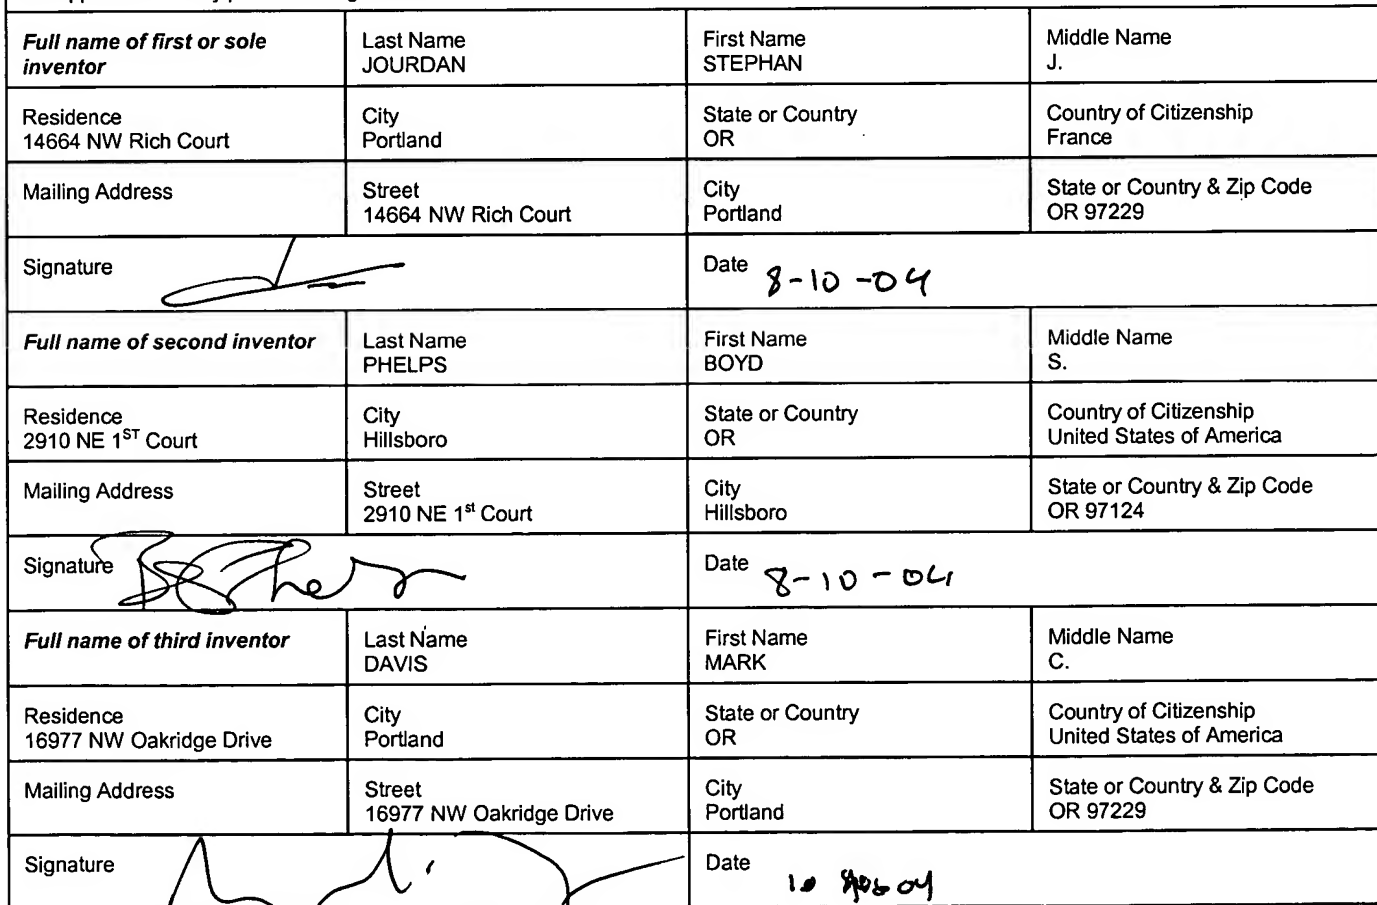 Full name of first or sole inventor
Last Name
JOURDAN
First Name
STEPHAN
Middle Name
J.
Residence
14664 NW Rich Court
City
Portland
State or Country
OR
Country of Citizenship
France
Mailing Address
Street
14664 NW Rich Court
City
Portland
State or Country & Zip Code
OR 97229
Signature
Date 8-10-04
Full name of second inventor
Last Name
PHELPS
First Name
BOYD
Middle Name
S.
Residence
2910 NE 1ST Court
City
Hillsboro
State or Country
OR
Country of Citizenship
United States of America
Mailing Address
Street
2910 NE 1st Court
City
Hillsboro
State or Country & Zip Code
OR 97124
Signature
Date 8-10-04
Full name of third inventor
Last Name
DAVIS
First Name
MARK
Middle Name
C.
Residence
16977 NW Oakridge Drive
City
Portland
State or Country
OR
Country of Citizenship
United States of America
Mailing Address
Street
16977 NW Oakridge Drive
City
Portland
State or Country & Zip Code
OR 97229
Signature
Date 10 04